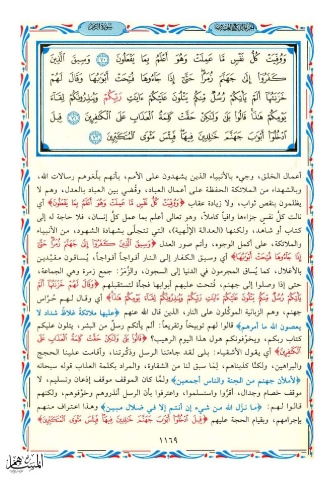 سورة الزمر
وَوُفِّيَتْ كُلُّ نَفْسٍ مَّا عَمِلَتْ وَهُوَ أَعْلَمُ بِمَا يَفْعَلُونَ ﴿٧٠﴾ وَسِيقَ الَّذِينَ
كَفَرُوا إِلَىٰ جَهَنَّمَ زُمَرًا حَتَّىٰ إِذَا جَاءُوهَا فُتِحَتْ أَبْوَابُهَا وَقَالَ لَهُمْ
خَزَنَتُهَا أَلَمْ يَأْتِكُمْ رُسُلٌ مِّنكُمْ يَتْلُونَ عَلَيْكُمْ آيَاتِ رَبِّكُمْ وَيُنذِرُونَكُمْ لِقَاءَ
يَوْمِكُمْ هَٰذَا قَالُوا بَلَىٰ وَلَٰكِنْ حَقَّتْ كَلِمَةُ الْعَذَابِ عَلَى الْكَافِرِينَ ﴿٧١﴾ قِيلَ
ادْخُلُوا أَبْوَابَ جَهَنَّمَ خَالِدِينَ فِيهَا فَبِئْسَ مَثْوَى الْمُتَكَبِّرِينَ ﴿٧٢﴾
أعمال الخلق، وجيء بالأنبياء الذين يشهدون على الأمم، بأنهم بلّغوهم رسالات الله،
وبالشهداء من الملائكة الحفظة على أعمال العباد، وقُضي بين العباد بالعدل، وهم لا
يظلمون بنقص ثواب، ولا زيادة عقاب ﴿وَوُفِّيَتْ كُلُّ نَفْسٍ مَّا عَمِلَتْ وَهُوَ أَعْلَمُ بِمَا يَفْعَلُونَ﴾ أي
نالت كلُّ نفسٍ جزاءها وافياً كاملاً، وهو تعالى أعلم بما عمل كلُّ إنسان، فلا حاجة له إلى
كتاب أو شاهد، ولكنها (العدالة الإلهية)، التي تتجلّى بشهادة الشهود، من الأنبياء
والملائكة، على أكمل الوجوه، وأتم صور العدل ﴿وَسِيقَ الَّذِينَ كَفَرُوا إِلَىٰ جَهَنَّمَ زُمَرًا حَتَّىٰ
إِذَا جَاءُوهَا فُتِحَتْ أَبْوَابُهَا﴾ أي وسيق الكفار إلى النار أفواجاً أفواجاً، يُساقون مقيّدين
بالأغلال، كما يُساق المجرمون في الدنيا إلى السجون، والزُّمَرُ: جمع زمرة وهي الجماعة،
حتى إذا وصلوا إلى جهنم، فُتحت عليهم أبوابها فجأة لتستقبلهم ﴿وَقَالَ لَهُمْ خَزَنَتُهَا أَلَمْ
يَأْتِكُمْ رُسُلٌ مِّنكُمْ يَتْلُونَ عَلَيْكُمْ آيَاتِ رَبِّكُمْ وَيُنذِرُونَكُمْ لِقَاءَ يَوْمِكُمْ هَٰذَا﴾ أي وقال لهم حُرّاس
جهنم، وهم الزبانية الموكّلون على النار، الذين قال الله عنهم ﴿عليها ملائكة غلاظ شداد لا
يعصون الله ما أمرهم﴾ قالوا لهم توبيخاً وتقريعاً: ألم يأتكم رسلٌ من البشر، يتلون عليكم
كتاب ربكم، ويخوّفونكم هول هذا اليوم الرهيب؟ ﴿قَالُوا بَلَىٰ وَلَٰكِنْ حَقَّتْ كَلِمَةُ الْعَذَابِ عَلَى
الْكَافِرِينَ﴾ أي يقول الأشقياء: بلى لقد جاءتنا الرسل وذكّرتنا، وأقامت علينا الحجج
والبراهين، ولكنّا كذبناهم، لِمَا سبق لنا من الشقاوة، والمراد بكلمة العذاب قوله سبحانه
﴿لأملأن جهنم من الجنة والناس أجمعين﴾ ولمّا كان الموقف موقف إذعان وتسليم، لا
موقف خصام وجدال، أقرّوا واستسلموا، واعترفوا بأن الرسل أنذروهم وخوّفوهم، ولكنهم
قالوا لهم: ﴿ما نزّل الله من شيء إن أنتم إلا في ضلال مبين﴾ وهذا اعتراف منهم
بإجرامهم، وبقيام الحجة عليهم ﴿قِيلَ ادْخُلُوا أَبْوَابَ جَهَنَّمَ خَالِدِينَ فِيهَا فَبِئْسَ مَثْوَى الْمُتَكَبِّرِينَ﴾
١١٦٩